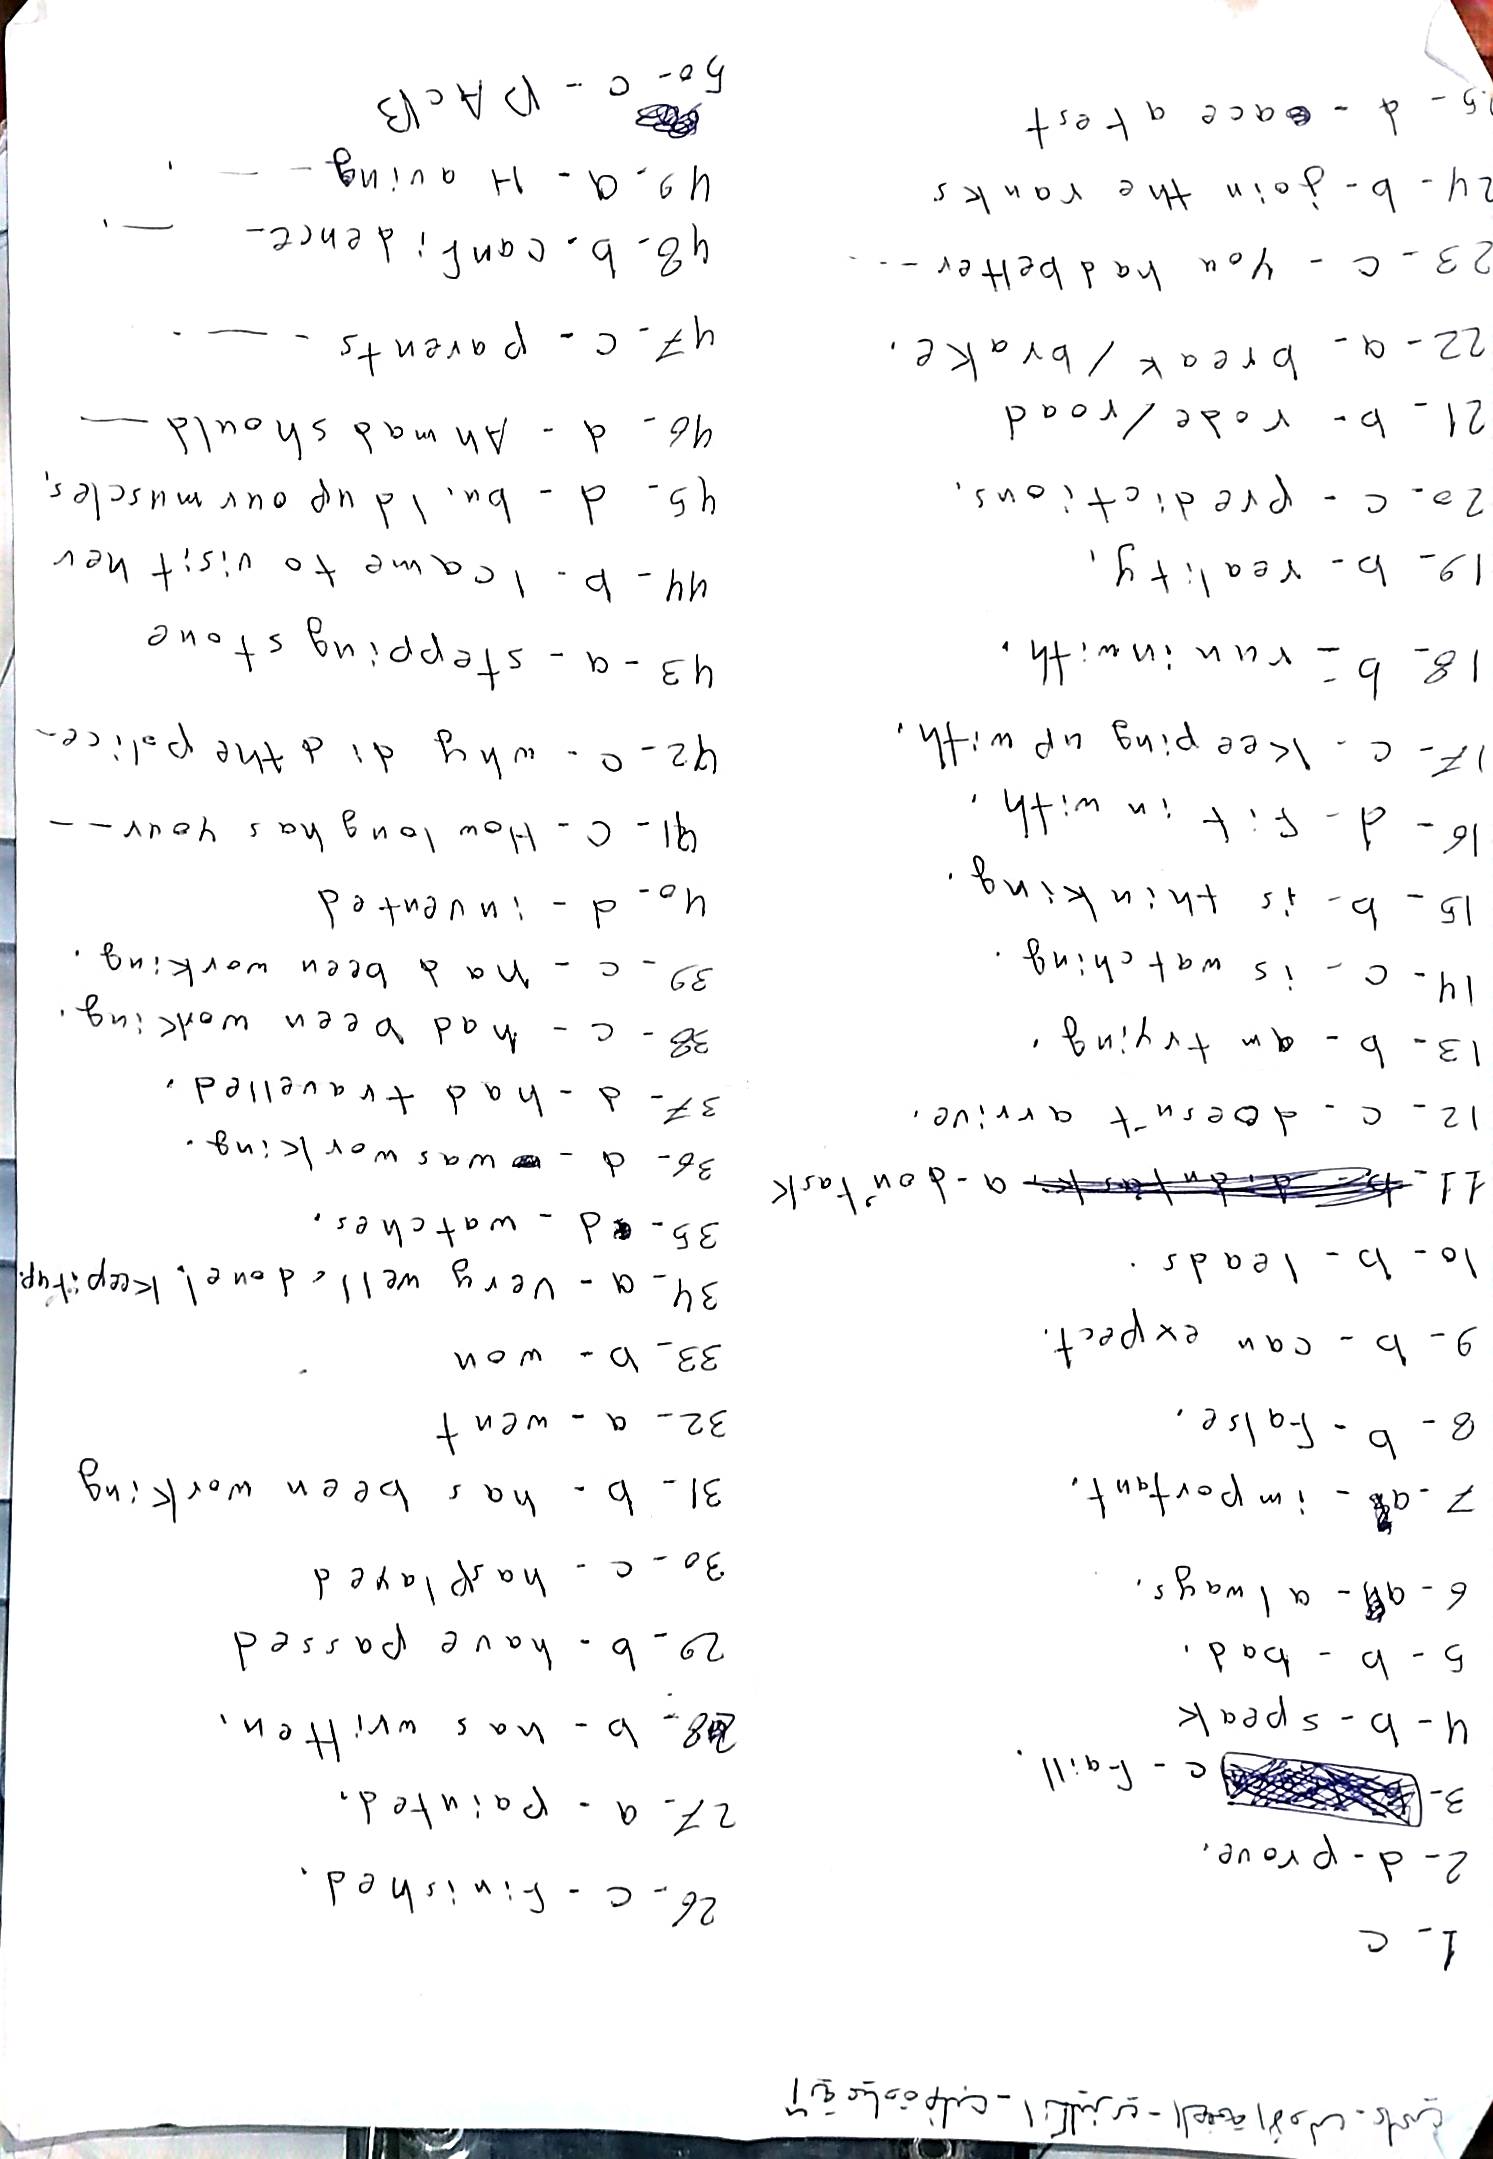 1- c
2- d- prove.
3- c - faill.
4- b- speak
5- b- bad.
6- a - always.
7- a - important.
8- b - False.
9- b - can expect.
10- b - leads.
11- a- don't ask
12- c - doesn't arrive.
13- b - am trying.
14- c - is watching.
15- b- is thinking.
16- d- fit in with.
17- c - keeping up with.
18- b - run in with.
19- b- reality.
20- c - predictions.
21- b- rode/road
22- a- break/brake.
23- c - you had better ---..
24- b- join the ranks
25- d- ace a test
26- c - finished.
27- a - painted.
28- b - has written.
29- b - have passed
30- c - has played
31- b - has been working
32- a - went
33- b - won
34- a - very well done! keep it up.
35- d - watches.
36- d - was working.
37- d - had travelled.
38- c - had been working.
39- c - had been working.
40- d - invented
41- c - How long has your --
42- c - why did the police-
43- a - stepping stone
44- b- I came to visit her
45- d- build up our muscles,
46- d - Ahmad should —
47- c - parents - — .
48- b. confidence- — .
49- a - Having - — .
50- c - DACB